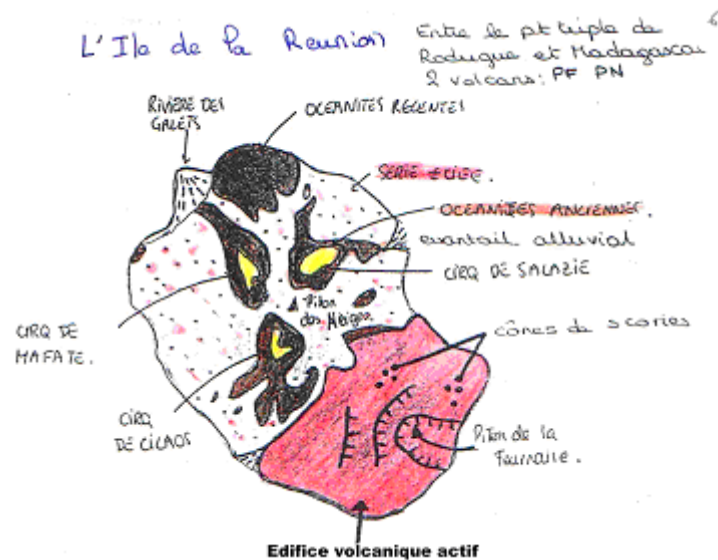 L'Ile de la Reunion
Entre le pt triple de
Rodrigue et Madagascar
2 volcans: PF PN
6
RIVIERE DES
GALETS
OCEANITES RECENTES
SERIE
OCEANITES ANCIENNES.
evantail alluvial
CIRQ DE SALAZIE
Piton
des Neiges
CIRQ DE
MAFATE.
cônes de scories
CIRQ
DE CILAOS
Piton de la
Fournaise.
Edifice volcanique actif